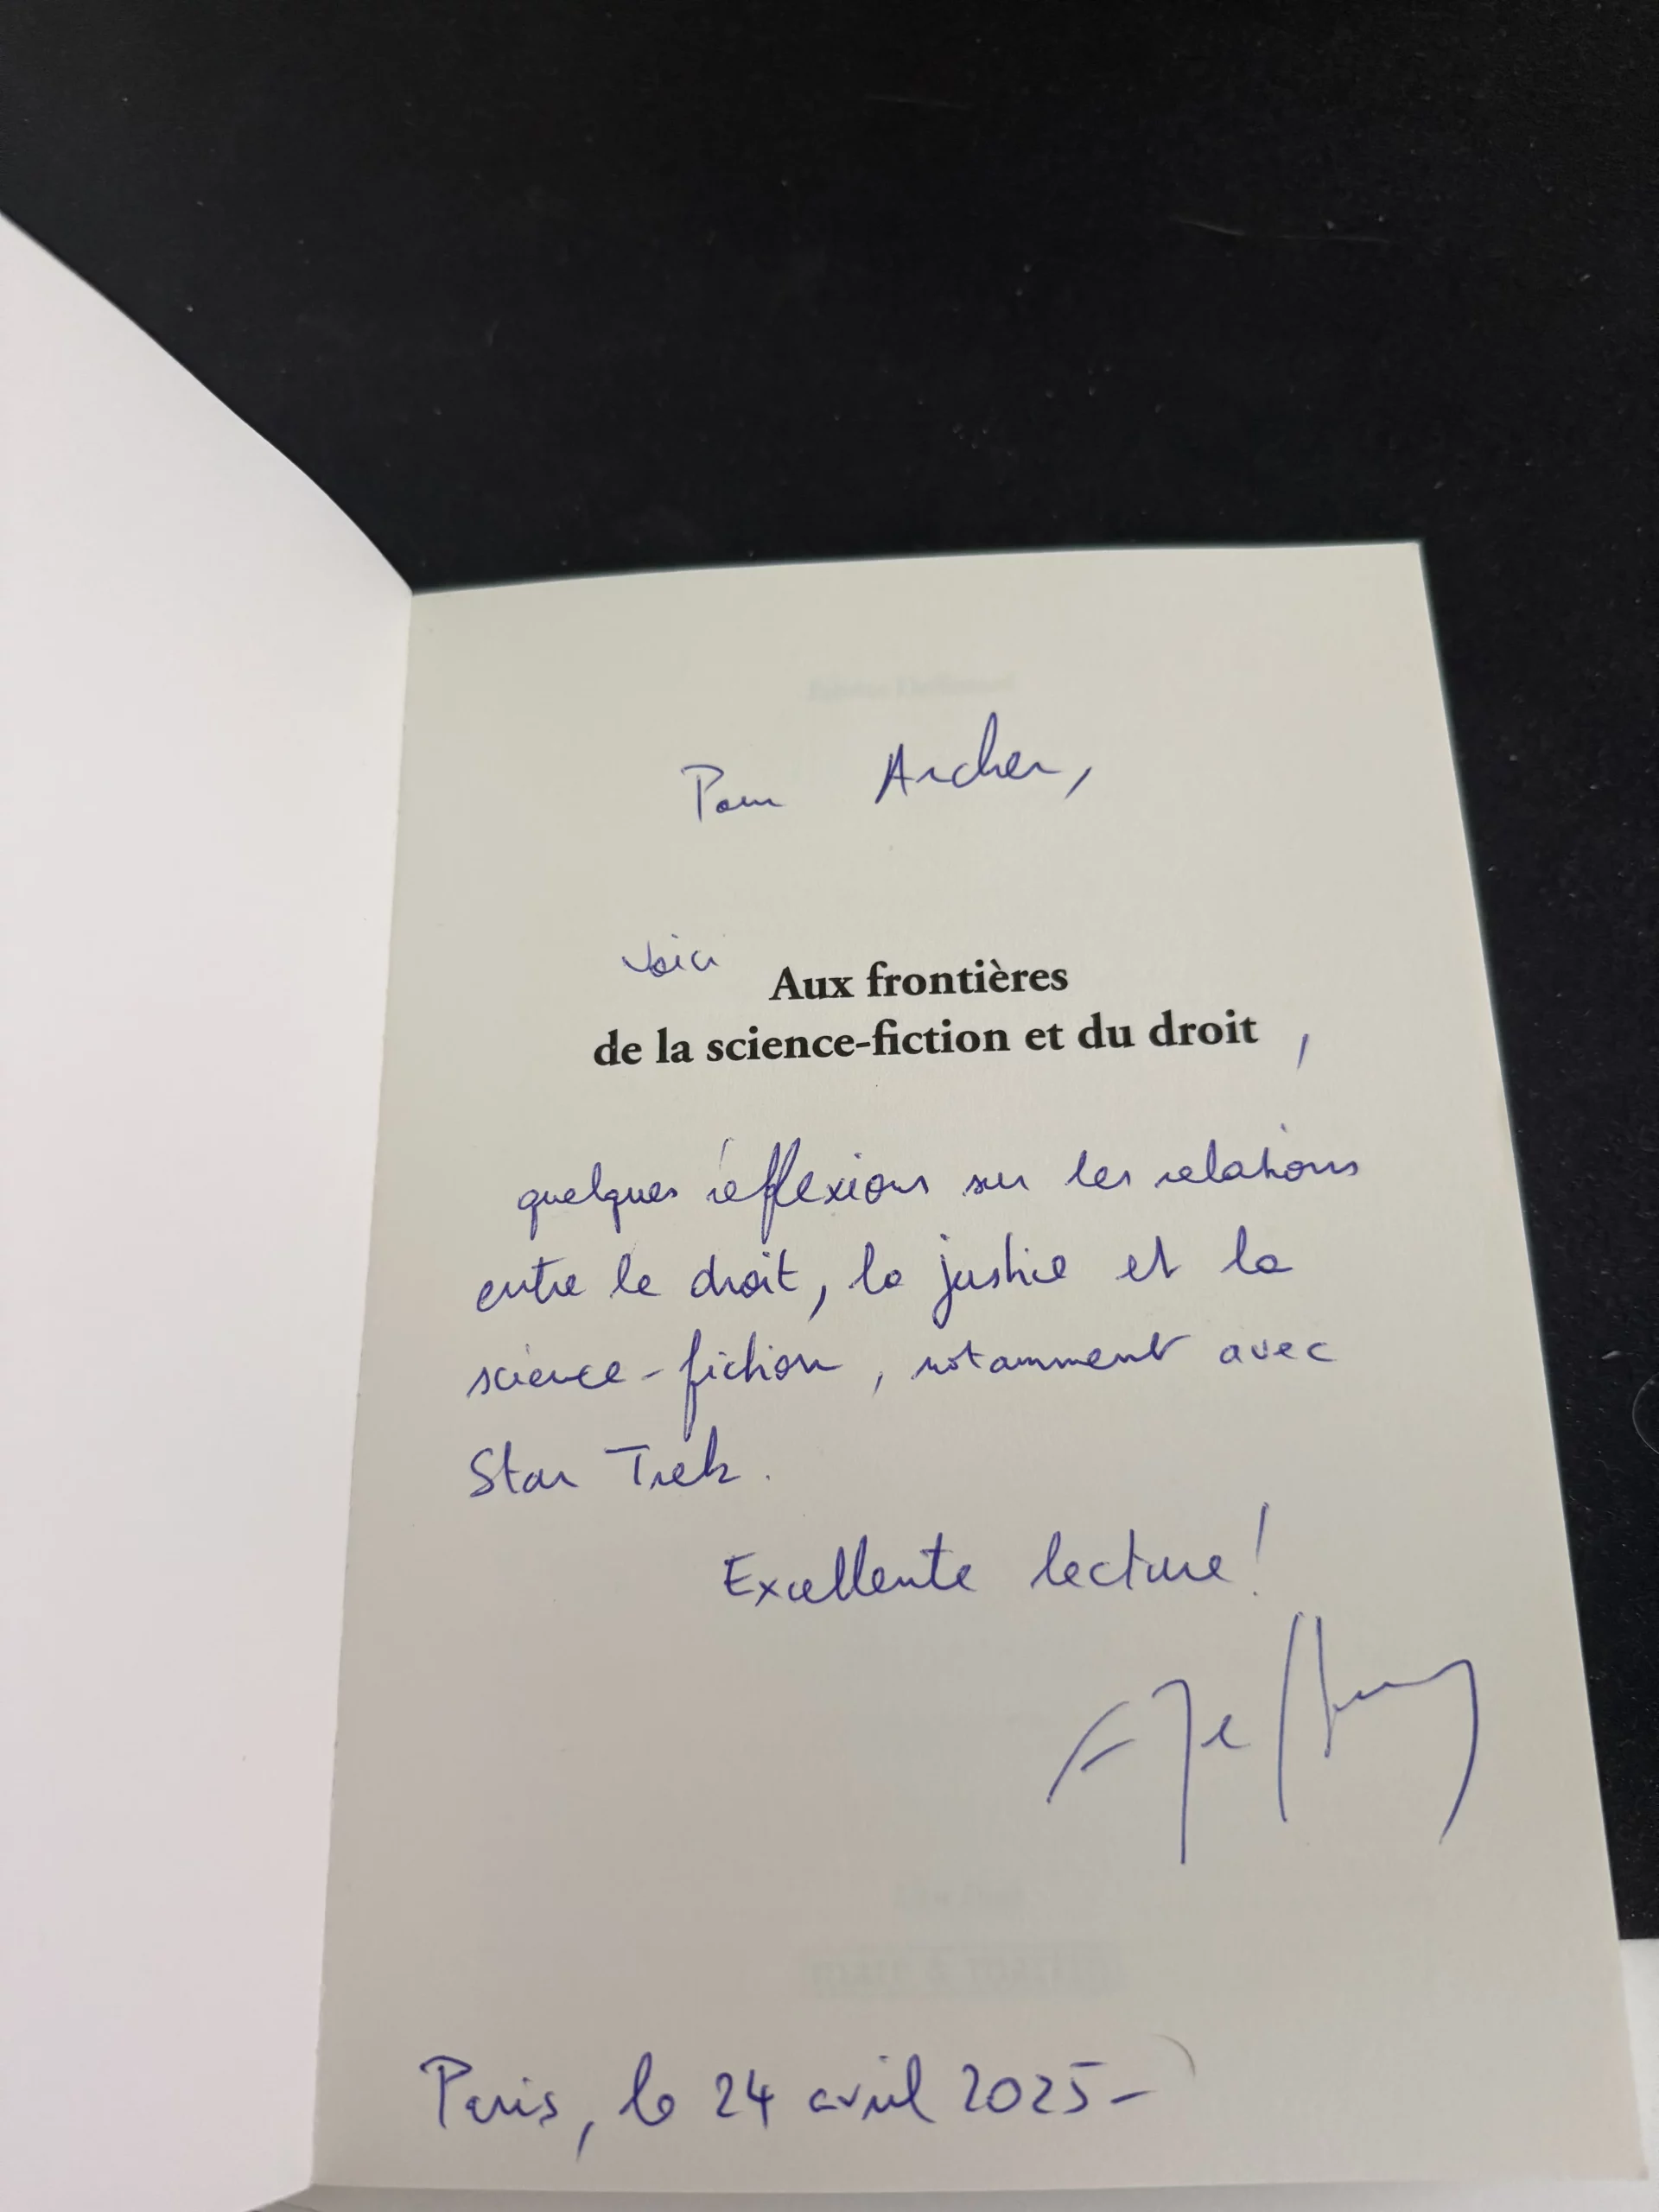 Pour Archer,
Voici
Aux frontières
de la science-fiction et du droit ,
quelques réflexions sur les relations
entre le droit, la justice et la
science-fiction, notamment avec
Star Trek.
Excellente lecture !
Paris, le 24 avril 2025-